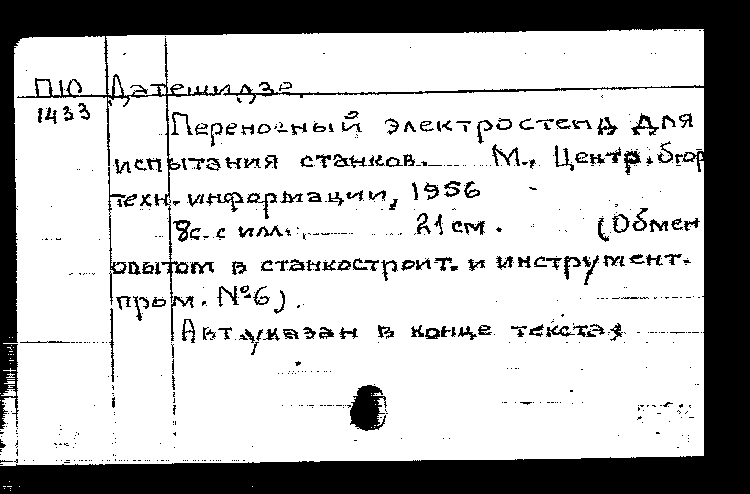 П10 Датешидзе.
1433
Переносный электростенд для
испытания станков. М., Центр. бюр
техн. информации, 1956
8с. с илл. 21 см. (Обмен
опытом в станкостроит. и инструмент.
пром. №6).
Авт. указан в конце текста